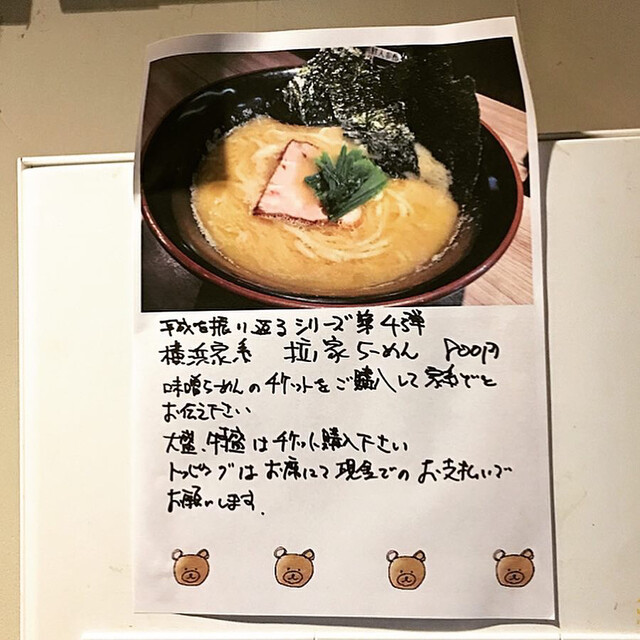 平成を振り返るシリーズ第4弾
横浜家系 拉ノ家らーめん 800円
味噌らーめんのチケットをご購入して家系でと
お伝え下さい
大盛、特盛はチケット購入下さい
トッピングはお席にて現金でのお支払いで
お願いします.